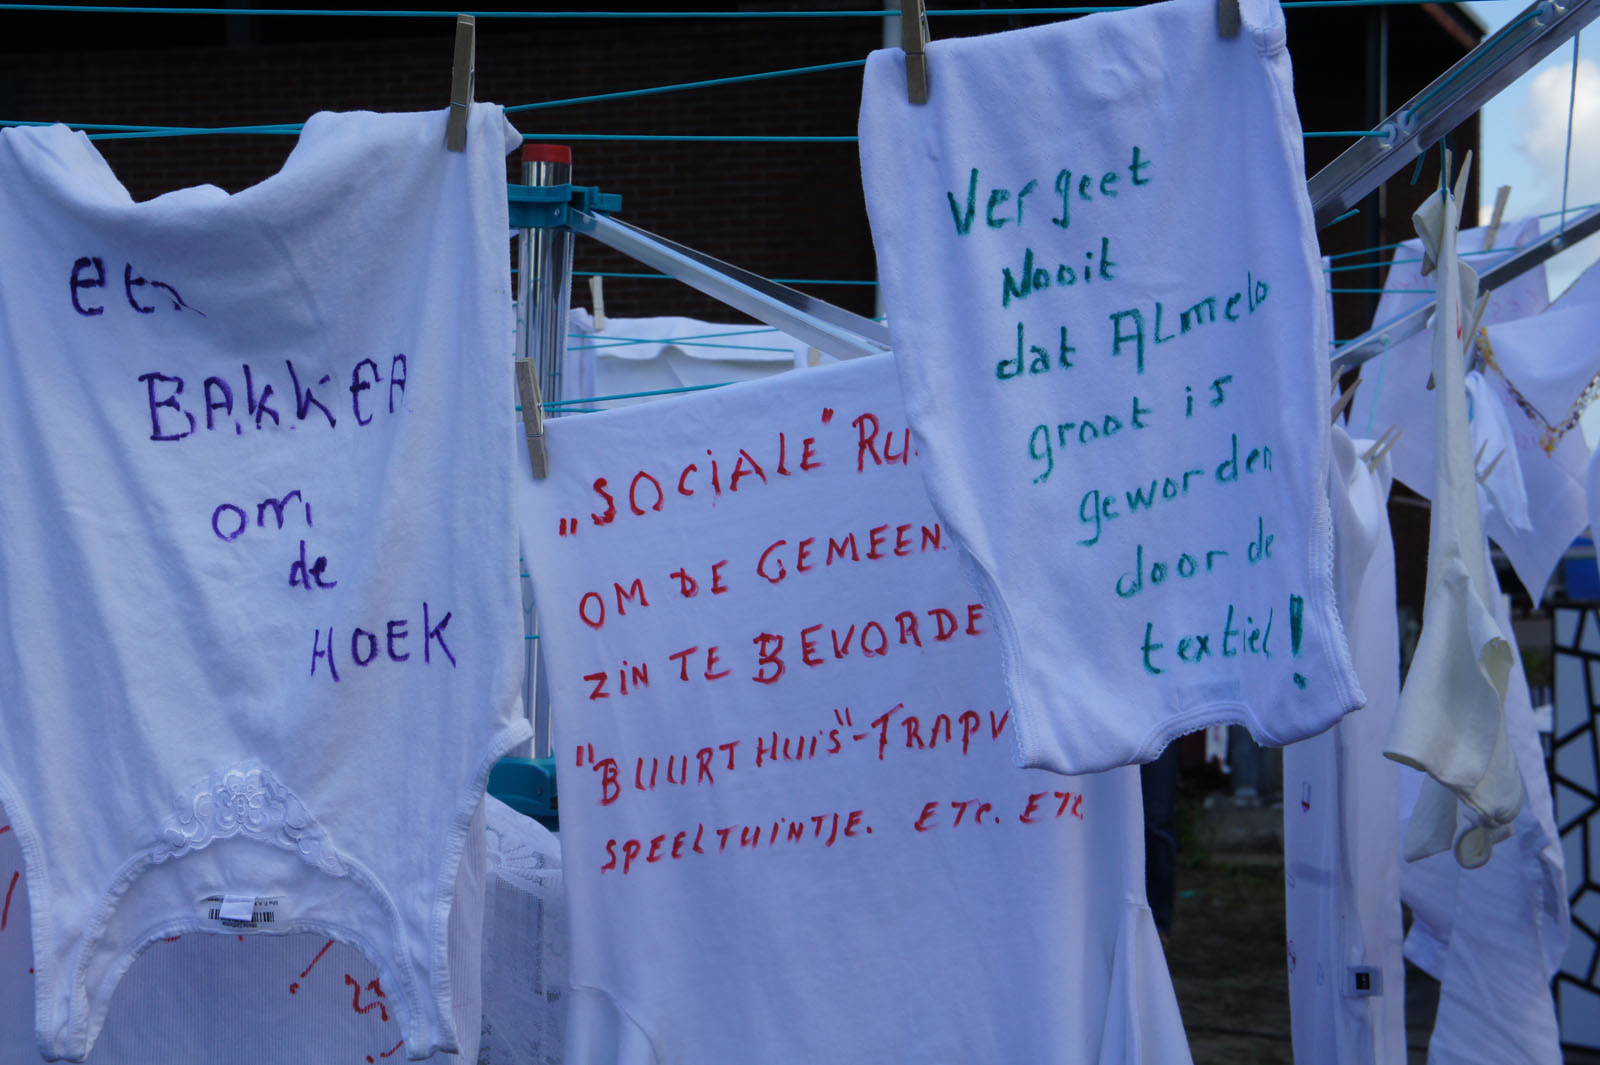 een
BAKKER
om
de
HOEK
„SOCIALE" RU
OM DE GEMEEN
ZIN TE BEVORDE
"BUURTHUIS"-TRAPV
SPEELTUINTJE. ETC. ETC
Vergeet
Nooit
dat ALmelo
groot is
geworden
door de
textiel!